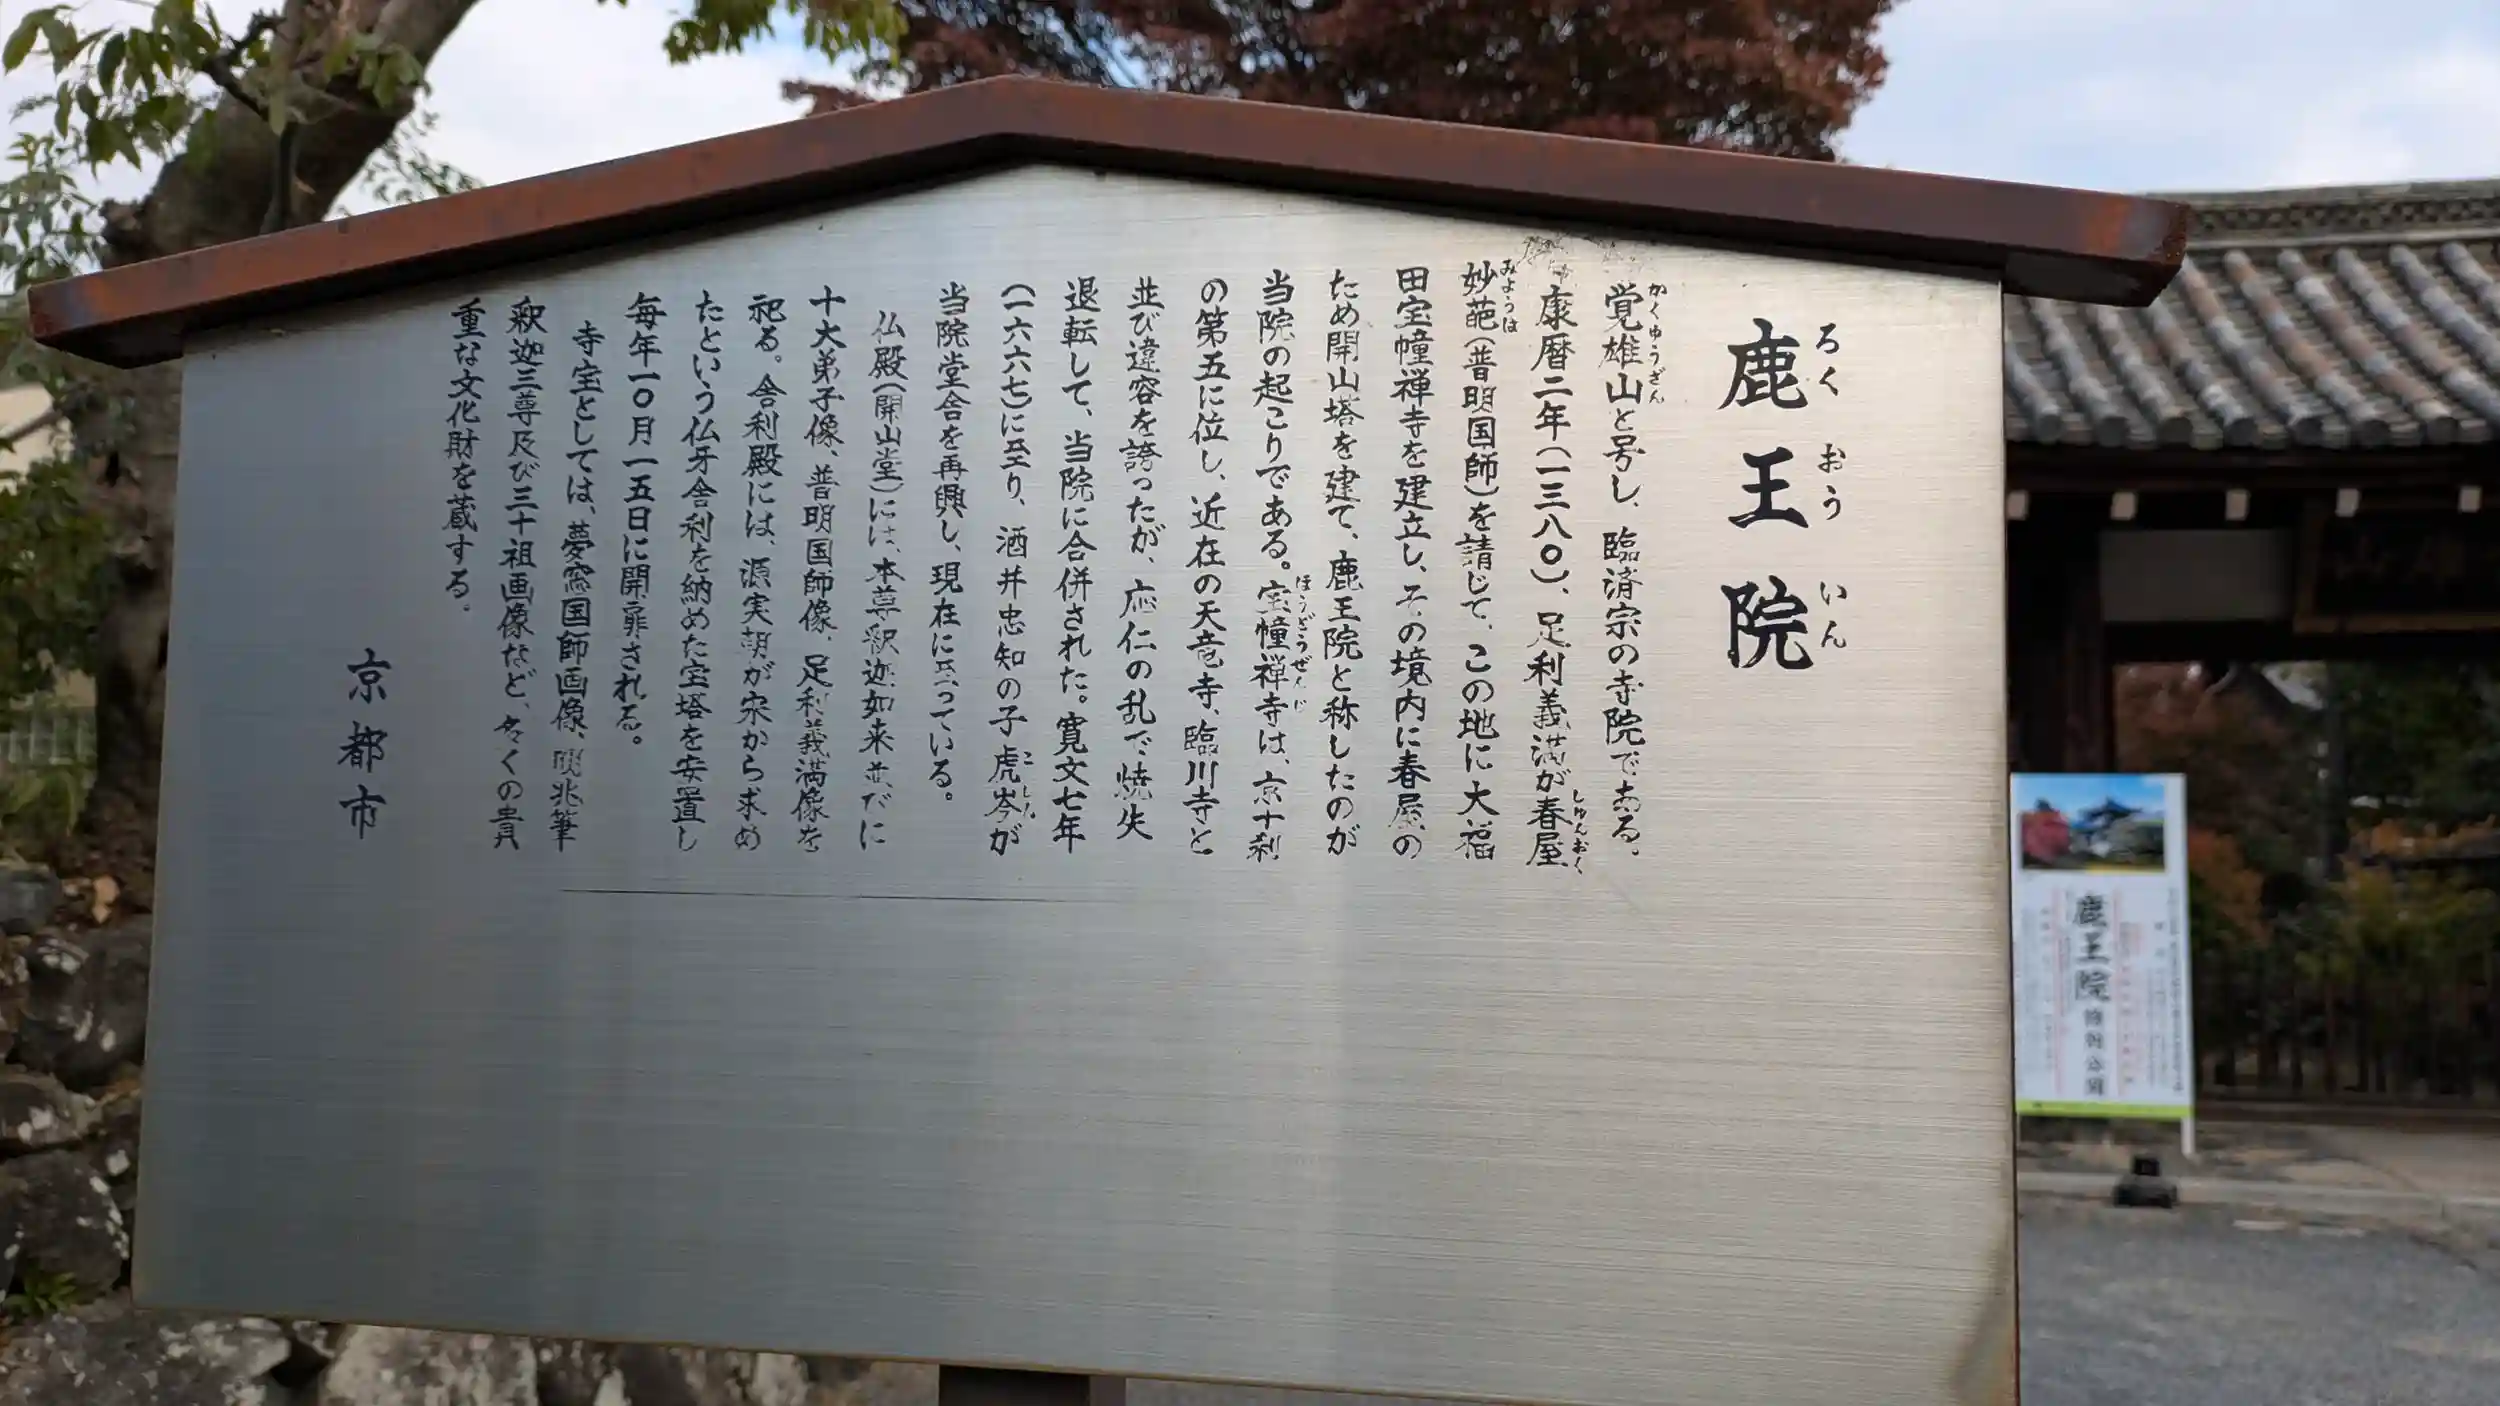 鹿王院
ろくおういん
覚雄山と号し、臨済宗の寺院である。
かくゆうざん
康暦二年(一三八〇)、足利義満が春屋
しゅんおく
妙葩(普明国師)を請じて、この地に大福
みょうは
田宝幢禅寺を建立し、その境内に春屋の
ため開山塔を建て、鹿王院と称したのが
当院の起こりである。宝幢禅寺は、京十刹
ほうどうぜんじ
の第五に位し、近在の天竜寺、臨川寺と
並び違容を誇ったが、応仁の乱で焼失
退転して、当院に合併された。寛文七年
(一六六七)に至り、酒井忠知の子虎岑が
こしん
当院堂舎を再興し、現在に至っている。
仏殿(開山堂)には、本尊釈迦如来並びに
十大弟子像、普明国師像、足利義満像を
祀る。舎利殿には、源実朝が宋から求め
たという仏牙舎利を納めた宝塔を安置し
毎年一〇月一五日に開扉される。
寺宝としては、夢窓国師画像、兆筆
釈迦三尊及び三十祖画像など、多くの貴
重な文化財を蔵する。
京都市
鹿王院 特別公開